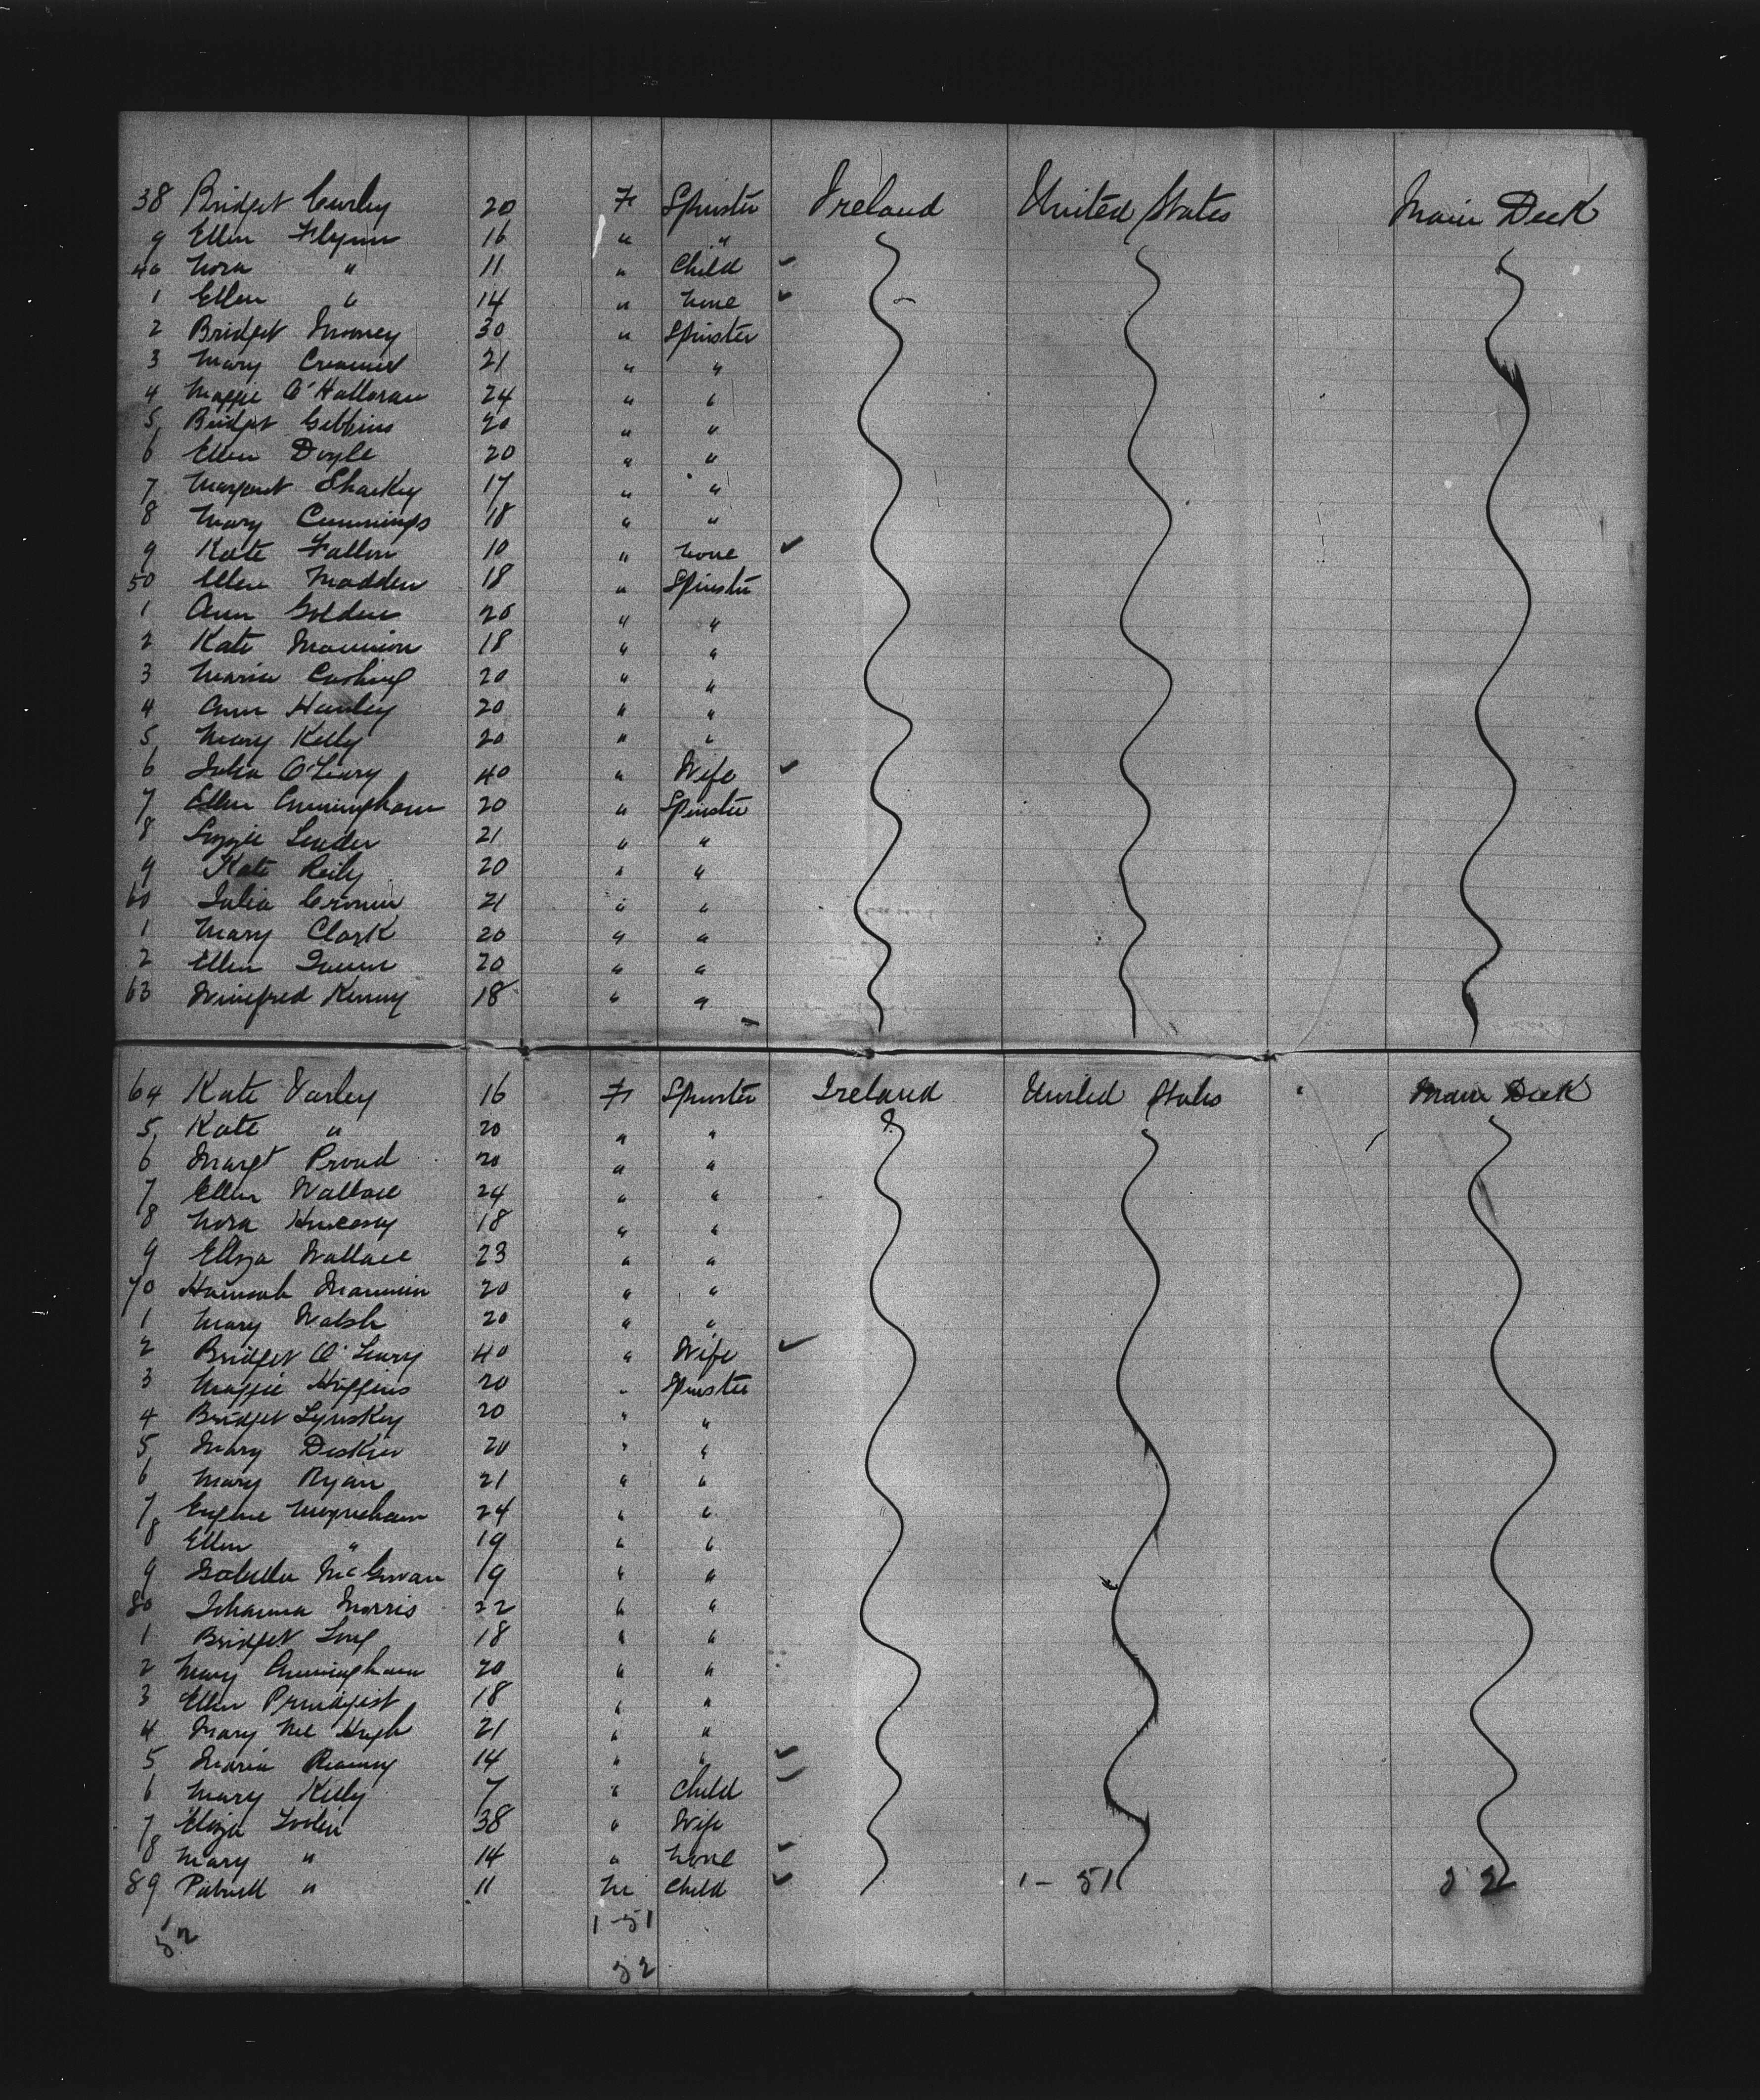 38 Bridget Curley 20 F Spinster Ireland United States Main Deck
9 Ellen Flynn 16 " "
40 Nora " 11 " Child
1 Ellen " 14 " None
2 Bridget Mooney 30 " Spinster
3 Mary 21 " "
4 Maggie O'Halloran 24 " "
5 Bridget Gibbins 20 " "
6 Ellen Doyle 20 " "
7 Margaret Sharkey 17 " "
8 Mary Cummings 18 " "
9 Kate Fallon 10 " None
50 Ellen Madden 18 " Spinster
1 Ann Golden 20 " "
2 Kate Mannion 18 " "
3 Maria Cushing 20 " "
4 Ann Hanley 20 " "
5 Mary Kelly 20 " "
6 Julia O'Leary 40 " Wife
7 Ellen Cunningham 20 " Spinster
8 Lizzie Leader 21 " "
9 Kate Reily 20 " "
60 Julia Cronin 21 " "
1 Mary Clark 20 " "
2 Ellen 20 " "
63 Winefred Kenny 18 " "
64 Kate Varley 16 F Spinster Ireland United States Main Deck
5 Kate " 20 " "
6 Margt Proud 20 " "
7 Ellen Wallace 24 " "
8 Nora Hennessy 18 " "
9 Eliza Wallace 23 " "
70 Hannah Mannion 20 " "
1 Mary Walsh 20 " "
2 Bridget O'Leary 40 " Wife
3 Maggie Higgins 20 " Spinster
4 Bridget Lynskey 20 " "
5 Mary 20 " "
6 Mary Ryan 21 " "
7 Eugene Moynihan 24 " "
8 Ellen " 19 " "
9 Isabella McGowan 19 " "
80 Johanna Morris 22 " "
1 Bridget Long 18 " "
2 Mary Cunningham 20 " "
3 Ellen 18 " "
4 Mary Mc Hugh 21 " "
5 Maria 14 " "
6 Mary Kelly 7 " Child
7 Eliza 38 " Wife
8 Mary " 14 " None
89 Patrick " 11 M Child 1-51 52
52 1-51
52